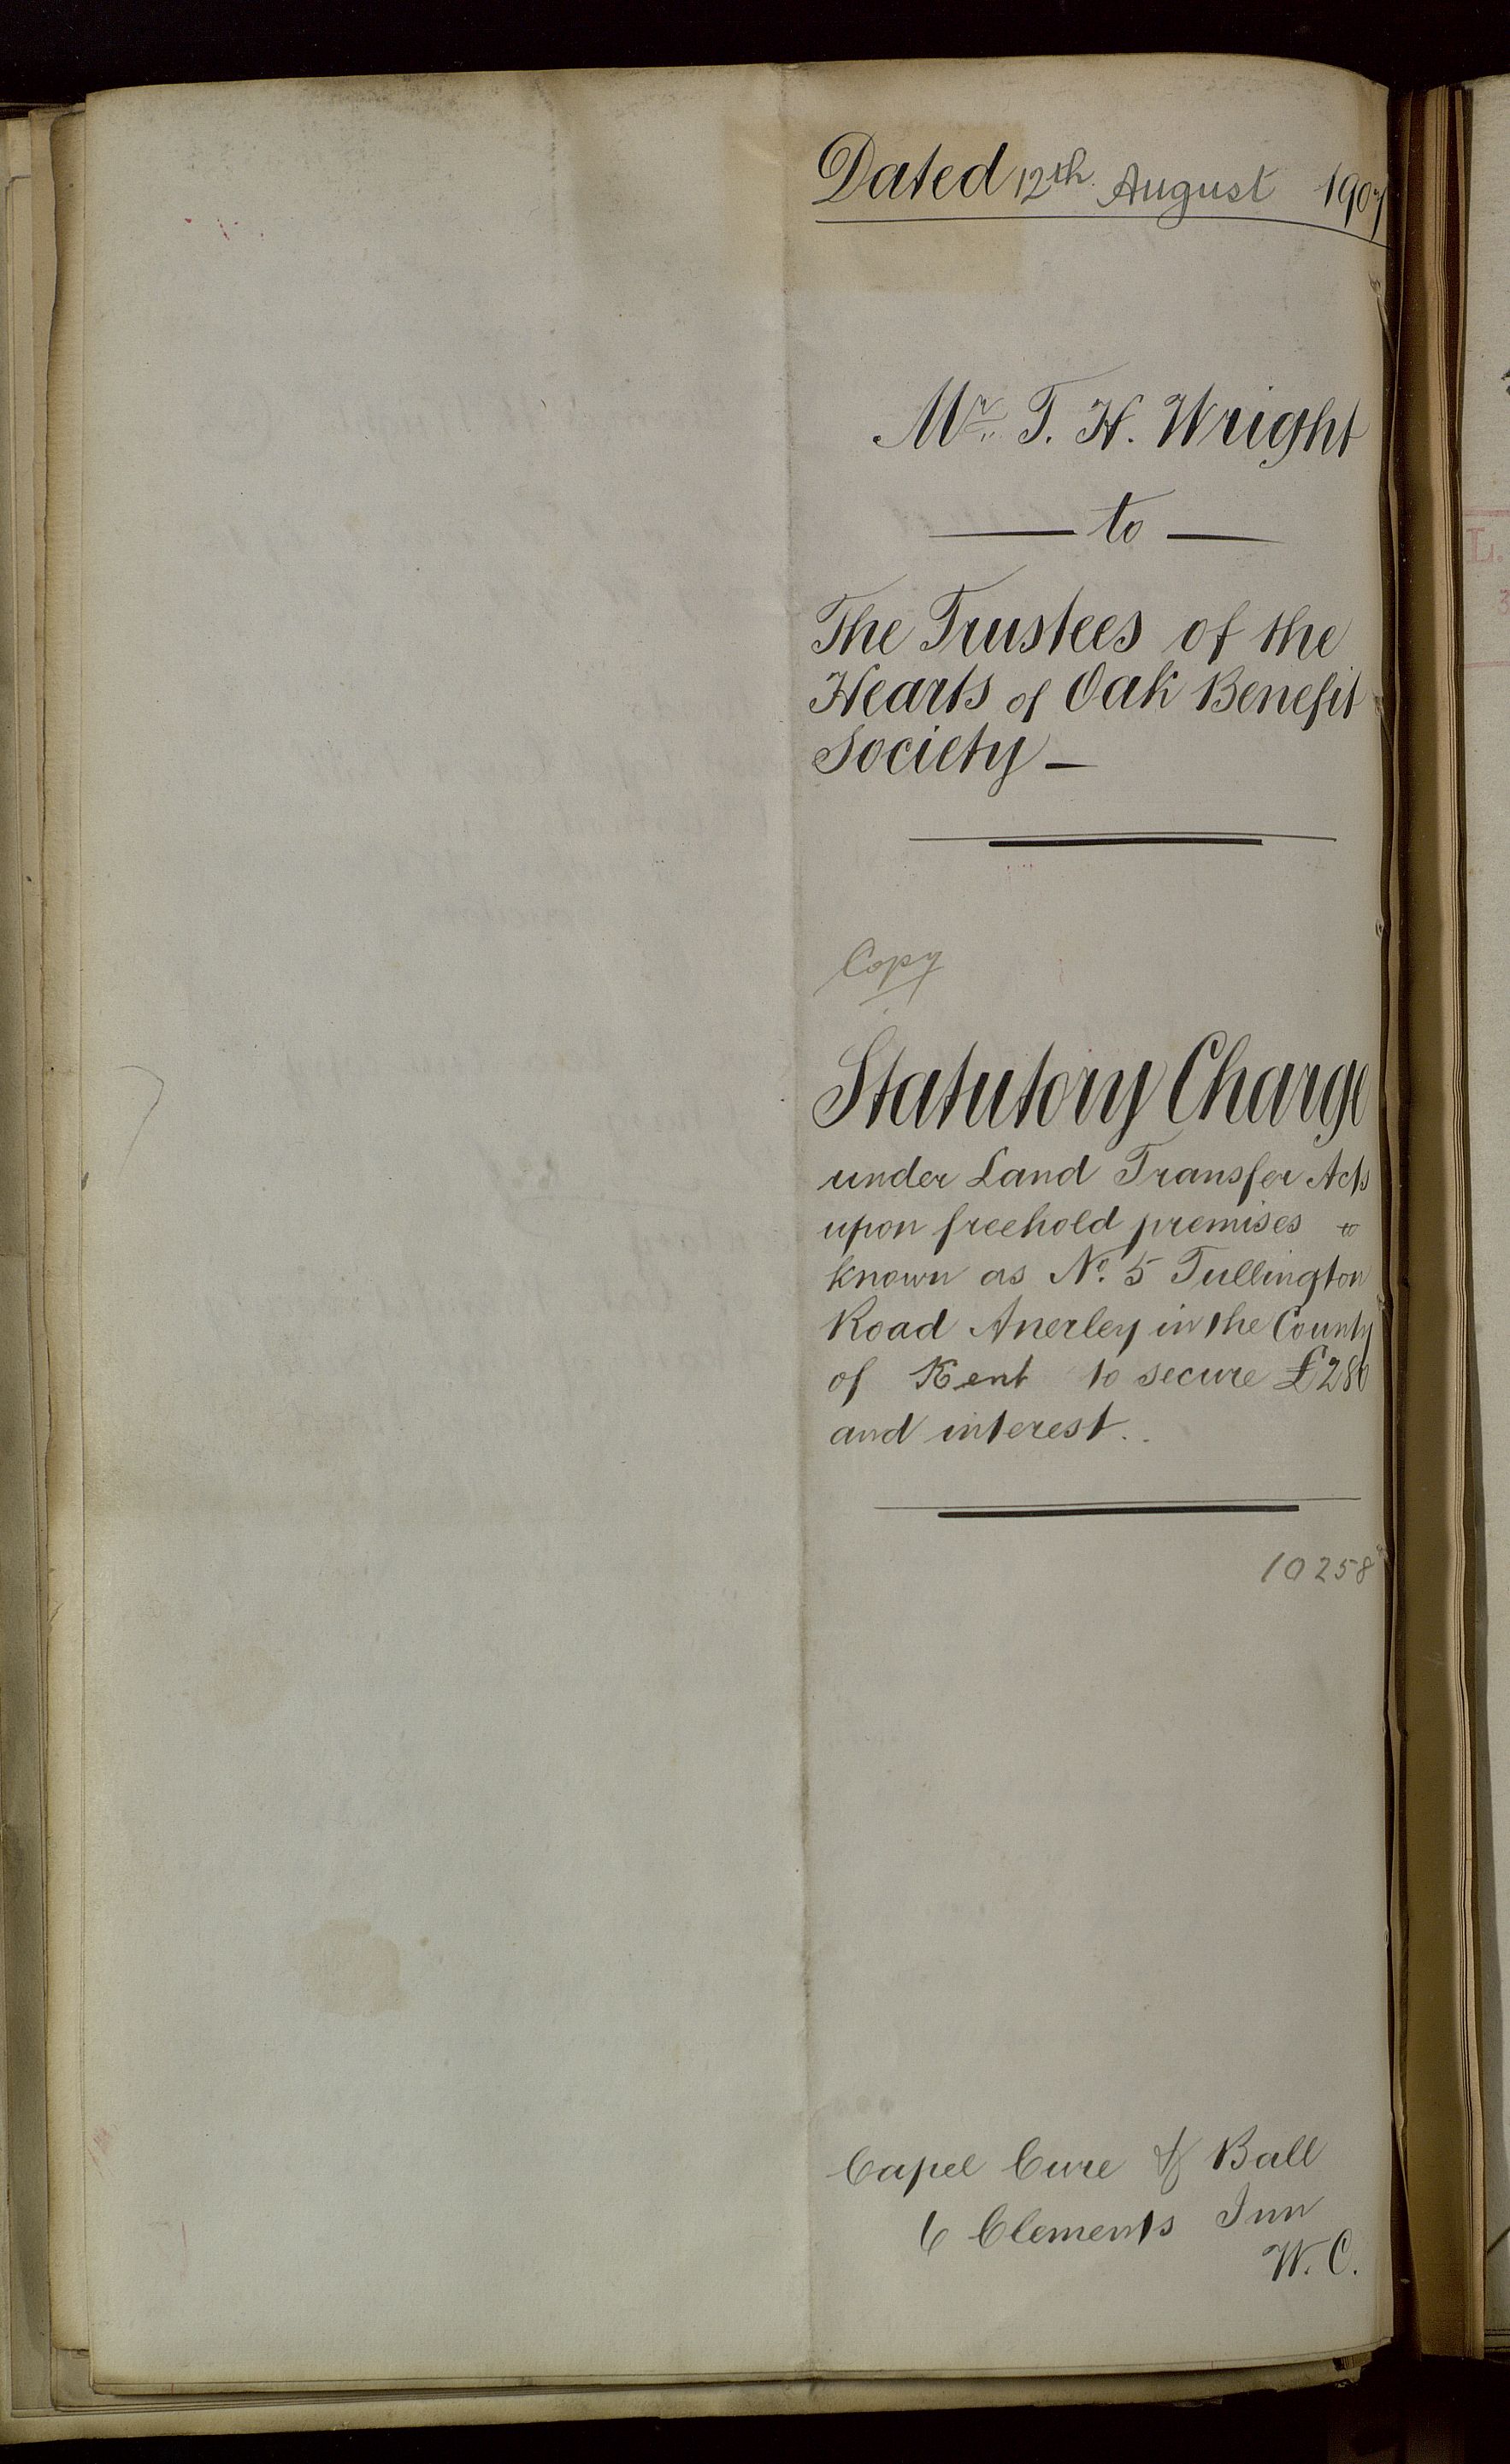 Dated 12th. August 1907
Mr. T. H. Wright
— to —
The Trustees of the
Hearts of Oak Benefit
Society —
Copy
Statutory Charge
under Land Transfer Acts
upon freehold premises
known as No. 5 Tullington
Road Anerley in the County
of Kent to secure £280
and interest..
10258
Capel Cure & Ball
6 Clements Inn
W. C.
L.